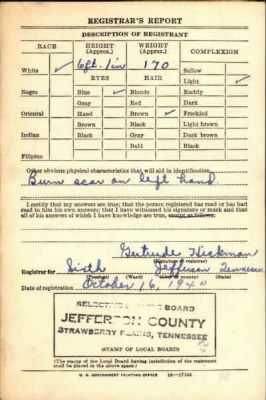 REGISTRAR'S REPORT
DESCRIPTION OF REGISTRANT
RACE HEIGHT (Approx.) WEIGHT (Approx.) COMPLEXION
White ✓ 6ft. 1in 170 Sallow
EYES HAIR Light ✓
Negro Blue ✓ Blonde Ruddy
Gray Red Dark
Oriental Hazel Brown ✓ Freckled
Brown Black Light brown
Indian Black Gray Dark brown
Bald Black
Filipino
Other obvious physical characteristics that will aid in identification
Burn scar on left hand.
I certify that my answers are true; that the person registered has read or has had
read to him his own answers; that I have witnessed his signature or mark and that
all of his answers of which I have knowledge are true, except as follows:
Gertrude Hickman
(Signature of registrar)
Registrar for Sixth Jefferson Tennessee
(Precinct) (Ward)
Date of registration October 16, 1940
SELECTIVE SERVICE BOARD
JEFFERSON COUNTY
STRAWBERRY PLAINS, TENNESSEE
(STAMP OF LOCAL BOARD)
(The stamp of the Local Board having jurisdiction of the registrant
shall be placed in the above space.)
U. S. GOVERNMENT PRINTING OFFICE